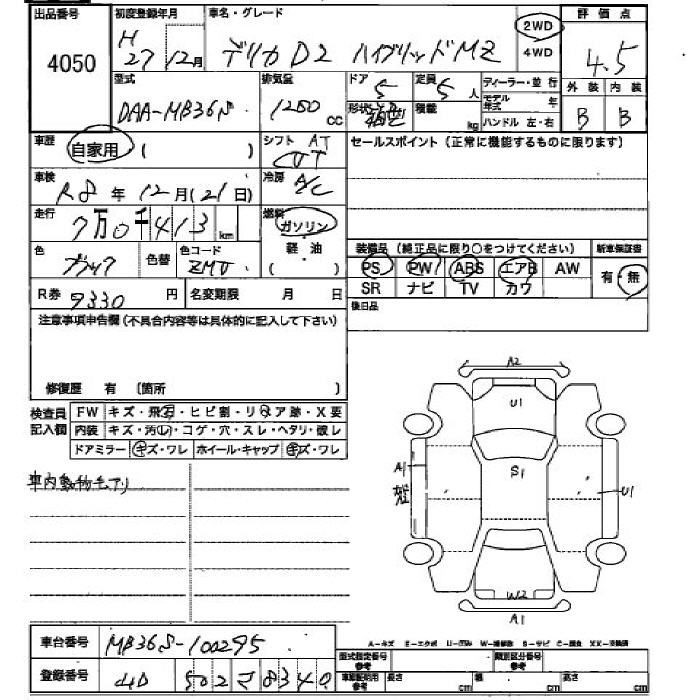 出品番号 初度登録年月 車名・グレード 評価点
4050 H 27年12月 デリカD2 ハイブリッドMZ 2WD 4WD 4.5
型式 排気量 ドア 定員 ディーラー・並行 外装 内装
DAA-MB36S 1250cc 5 5人 モデル年式 年 B B
形状 箱型 積載 kg ハンドル 左・右
車歴 自家用 ( ) シフト AT CVT セールスポイント (正常に機能するものに限ります)
車検 R8年12月(21日) 冷房 A/C
走行 7万0千413km 燃料 ガソリン
色 ブラック 色替 色コード ZMV 軽油 ( ) 装備品 (純正品に限り○をつけてください) 新車保証書
PS PW ABS エアB AW 有・無
R券 9330円 名変期限 月 日 SR ナビ TV カワ
注意事項申告欄 (不具合内容等は具体的に記入して下さい) 後日品
修復歴 有 〔箇所 〕
検査員記入欄 FW キズ・飛石・ヒビ割・リペア跡・X要
内装 キズ・汚レ・コゲ・穴・スレ・ヘタリ・破レ
ドアミラー キズ・ワレ ホイール・キャップ キズ・ワレ
A2
U1
A1 S1 U1
車内動物毛アリ
W2
A1
A-キズ E-エクボ U-凹み W-補修跡 S-サビ C-腐食 XX-交換済
車台番号 MB36S-100295
型式指定番号 参考 類別区分番号 参考
登録番号 502 さ 8340
車庫証明用 参考 長さ cm 幅 cm 高さ cm